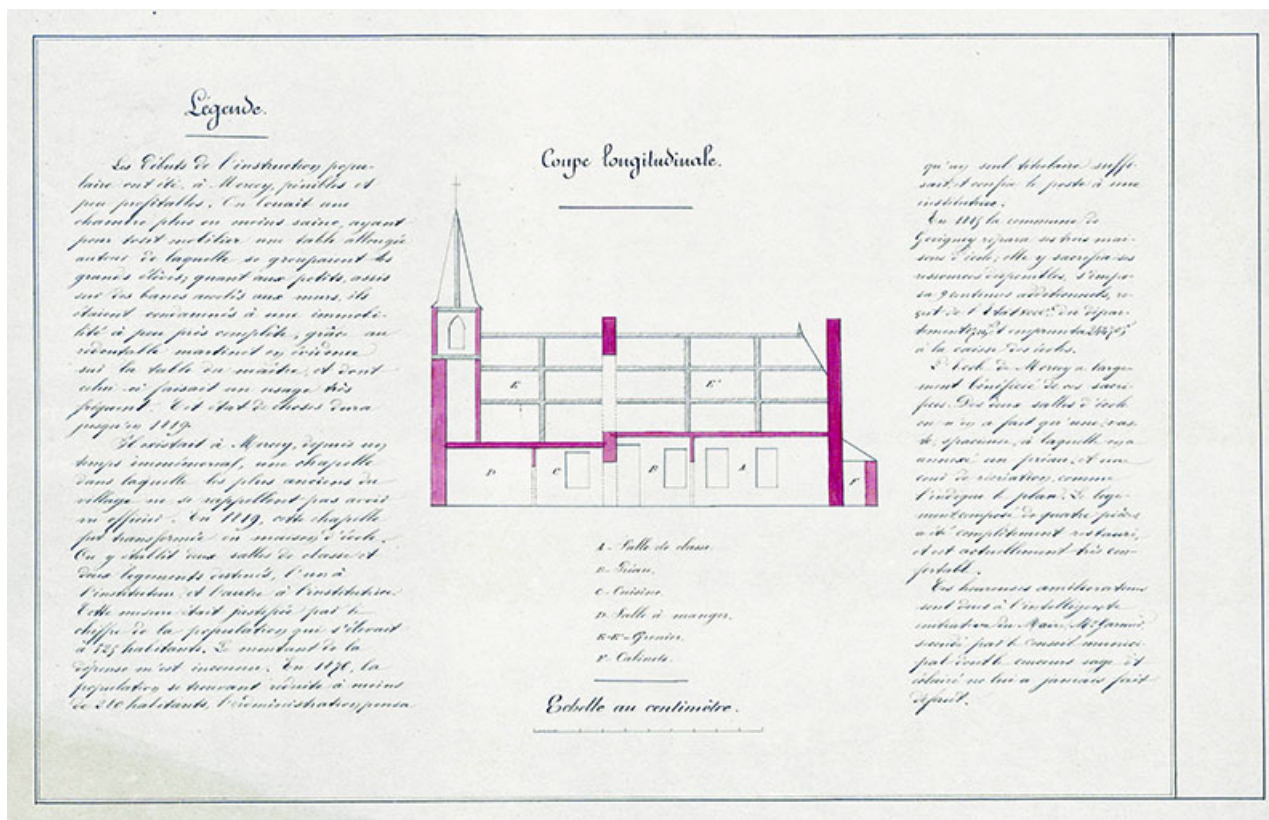 Légende.
Les débuts de l'instruction popu-
laire ont été, à Mercey, pénibles et
peu profitables. On louait une
chambre plus ou moins saine, ayant
pour tout mobilier une table allongée
autour de laquelle se groupaient les
grands élèves; quant aux petits, assis
sur des bancs accotés aux murs, ils
étaient condamnés à une immobi-
lité à peu près complète, grâce au
redoutable martinet en évidence
sur la table du maître, et dont
celui-ci faisait un usage très
fréquent. Cet état de choses dura
jusqu'en 1819.
Il existait à Mercey, depuis un
temps immémorial, une chapelle
dans laquelle les plus anciens du
village ne se rappellent pas avoir
vu officier. En 1819, cette chapelle
fut transformée en maison d'école.
On y établit deux salles de classe et
deux logements destinés, l'un à
l'instituteur, et l'autre à l'institutrice.
Cette mesure était justifiée par le
chiffre de la population qui s'élevait
à 525 habitants. Le montant de la
dépense m'est inconnu. En 1876, la
population se trouvant réduite à moins
de 280 habitants, l'administration pensa
Coupe longitudinale.
E
E'
D
C
B
A
F
A - Salle de classe.
B - Préau.
C - Cuisine.
D - Salle à manger.
E-E' - Grenier.
F - Cabinets.
Echelle au centimètre.
qu'un seul titulaire suffi-
sait, et confia le poste à une
institutrice.
En 1885 la commune de
Gevigney répara ses trois mai-
sons d'école; elle y sacrifia ses
ressources disponibles, s'impo-
sa centimes additionnels, re-
çut de l'Etat du dépar-
tement et emprunta
à la caisse des écoles.
L'école de Mercey a large-
ment bénéficié de ces sacri-
fices. Des deux salles d'école
on n'en a fait qu'une, vas-
te, spacieuse, à laquelle on a
annexé un préau, et une
cour de récréation, comme
l'indique le plan. Le loge-
ment composé de quatre pièces
a été complètement restauré,
et est actuellement très con-
fortable.
Ces heureuses améliorations
sont dues à l'intelligente
initiative du Maire, Mr
secondé par le Conseil munici-
pal dont le concours sage et
éclairé ne lui a jamais fait
défaut.